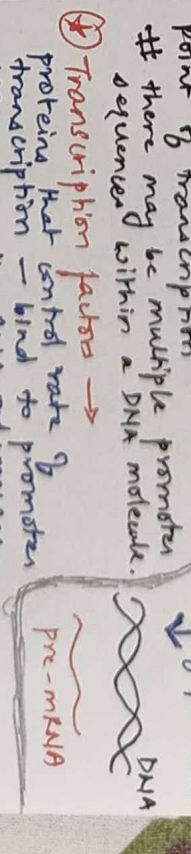 point of transcription
# there may be multiple promoter
sequences within a DNA molecule.
DNA
* Transcription factors →
proteins that control rate of
transcription - bind to promoter
pre-mRNA